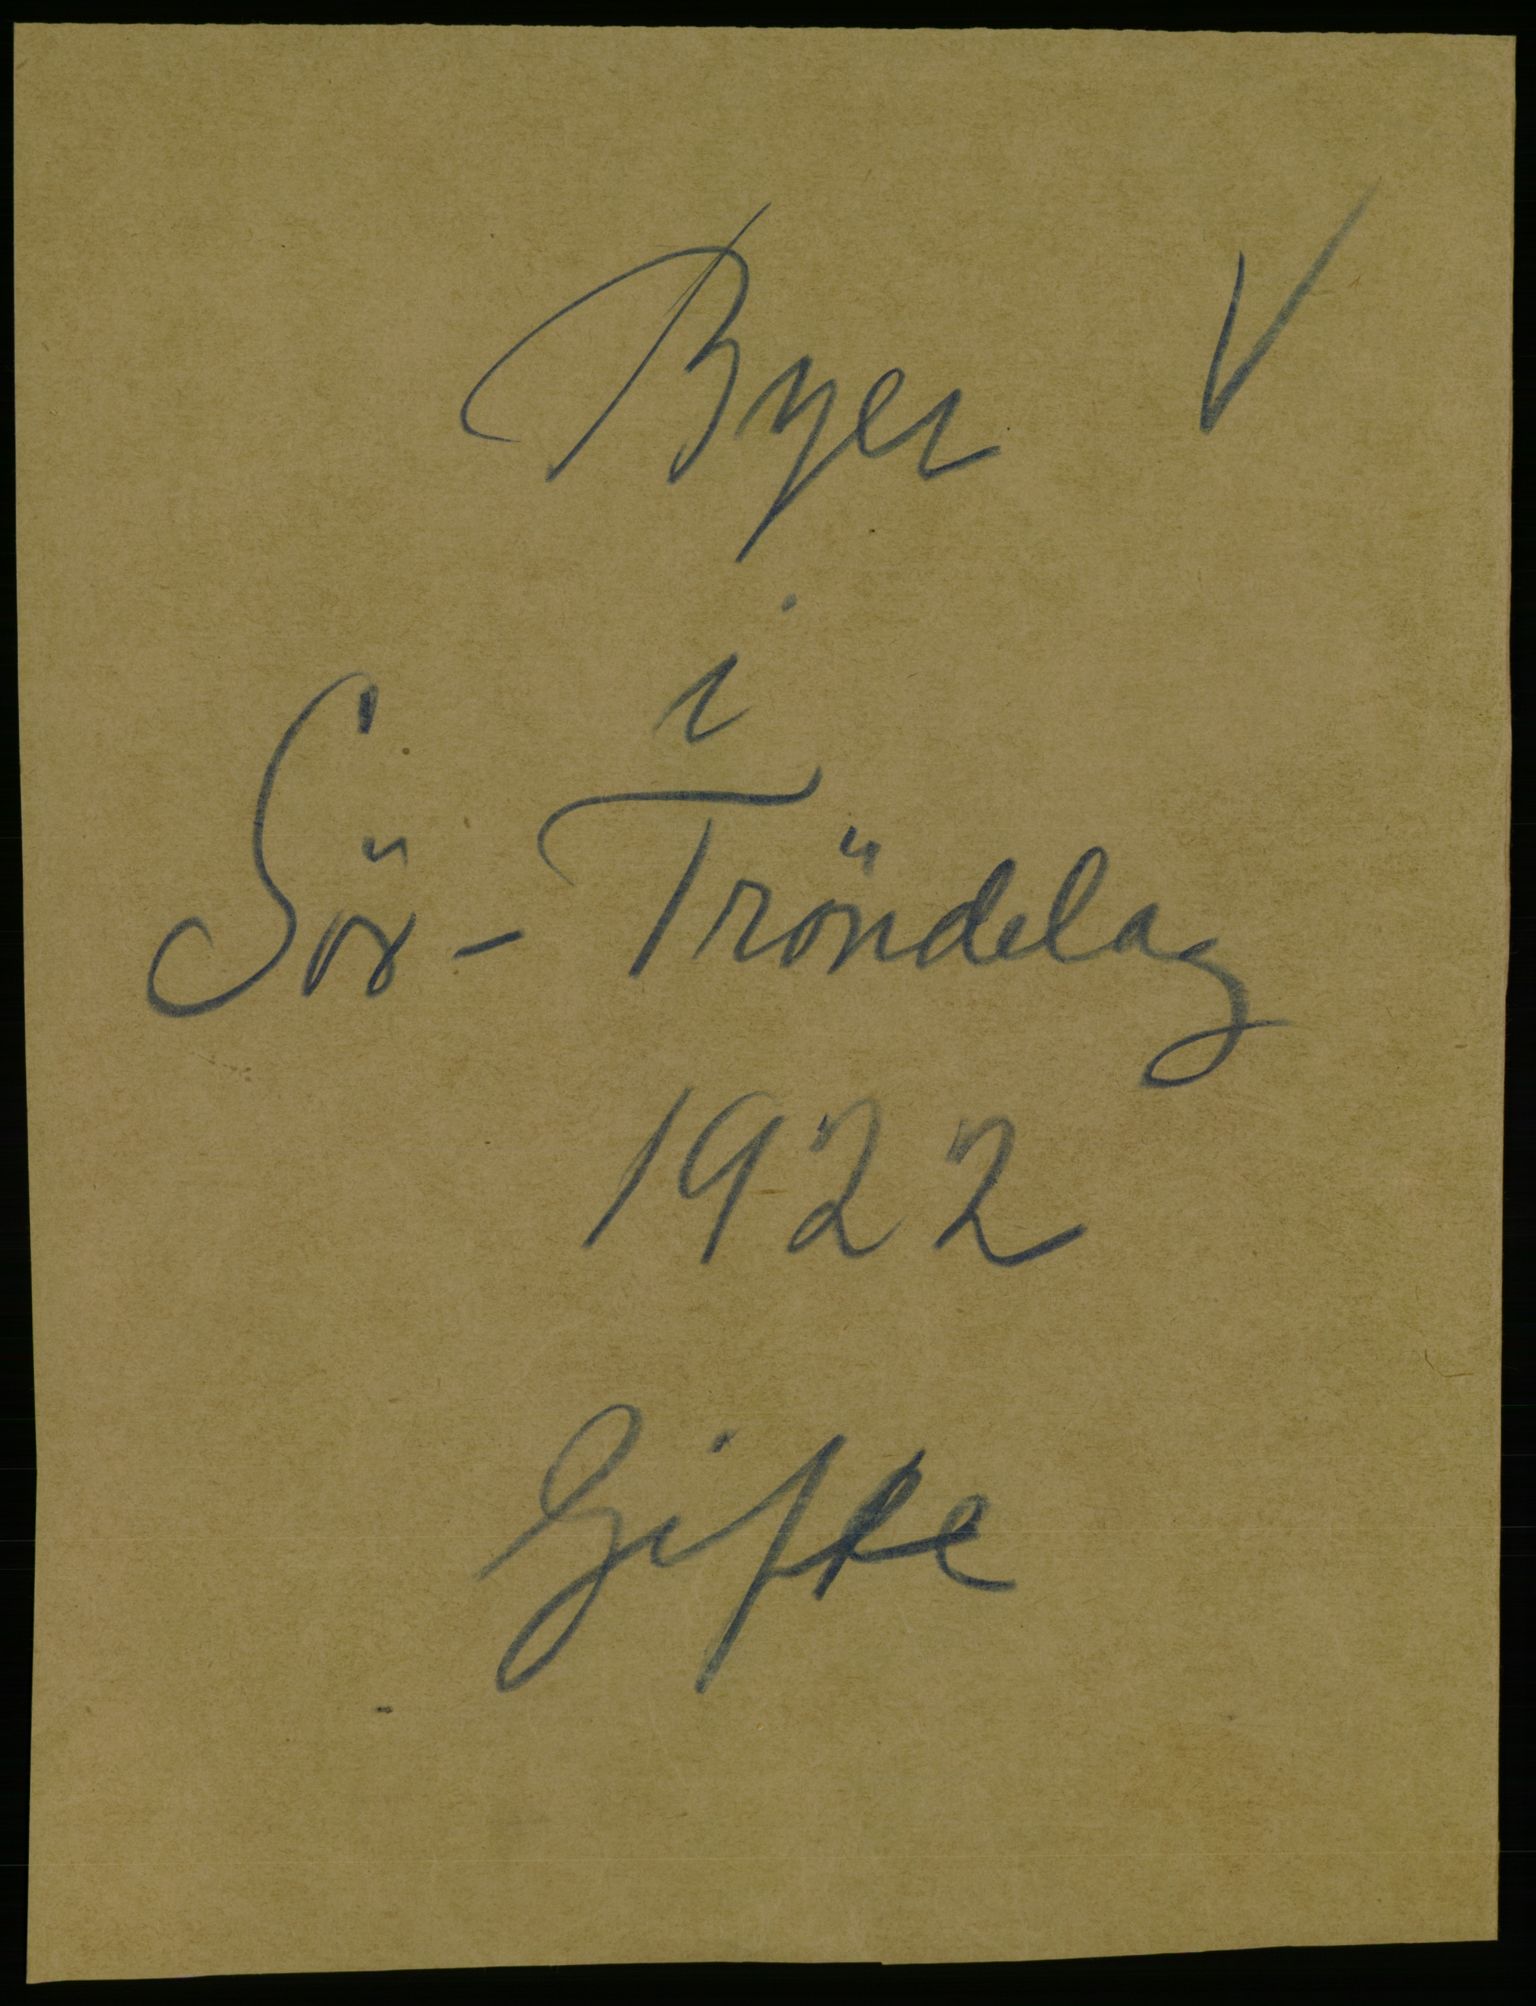 Byer V
i
Sör-Tröndelag
1922
Gifte